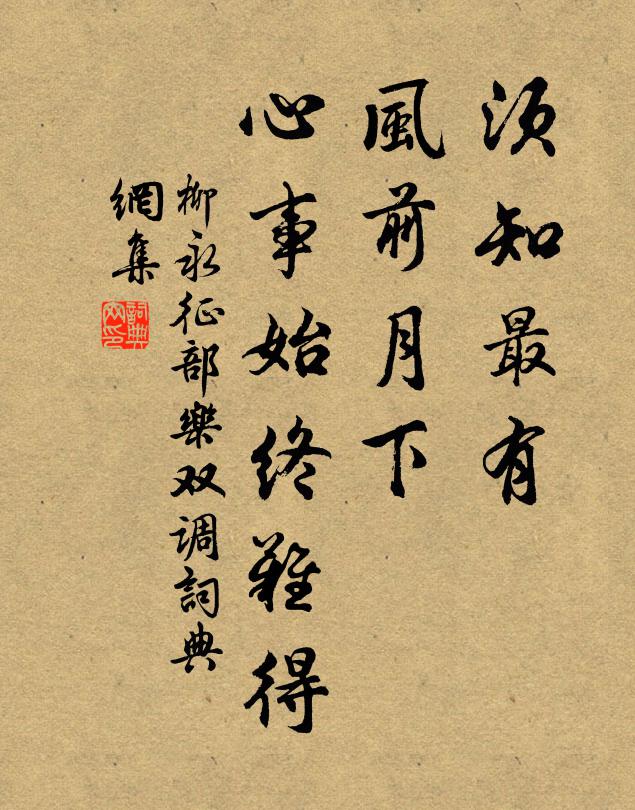 須知最有
風前月下
心事始終難得
柳永征部樂双调詞典
網集
詞典
网印